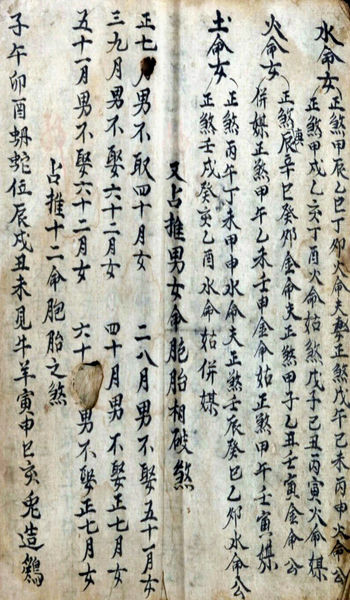 水命女
正煞甲辰乙巳丁火命夫煞戊午己未丙申火命公
正煞甲戌乙亥丁酉火命姑煞戊子己丑丙寅火命媒
火命女
正煞庚辰辛巳癸卯金命夫正煞甲子乙丑壬寅金命公
併媒正煞甲午乙未壬申金命姑正煞甲午壬寅媒
土命女
正煞丙午丁未甲申水命夫正煞壬辰癸巳乙卯水命公
正煞壬戌癸亥乙酉水命姑併媒
又占推男女命胞胎相破煞
正七月男不取四十月女 二八月男不娶五十一月女
三九月男不娶六十二月女 四十月男不娶正七月女
五十一月男不娶六十二月女 六十男不娶正七月女
占推十二命胞胎之煞
子午卯酉蛇位辰戌丑未見牛羊寅申巳亥兎造鷄